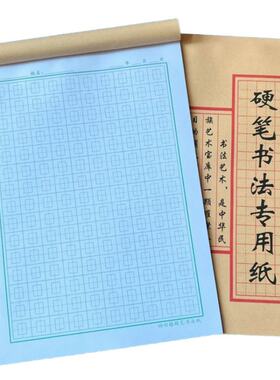 姓名: 年 月 日
硬笔书法专用纸
书法艺术,是中华民
族艺术宝库中一颗